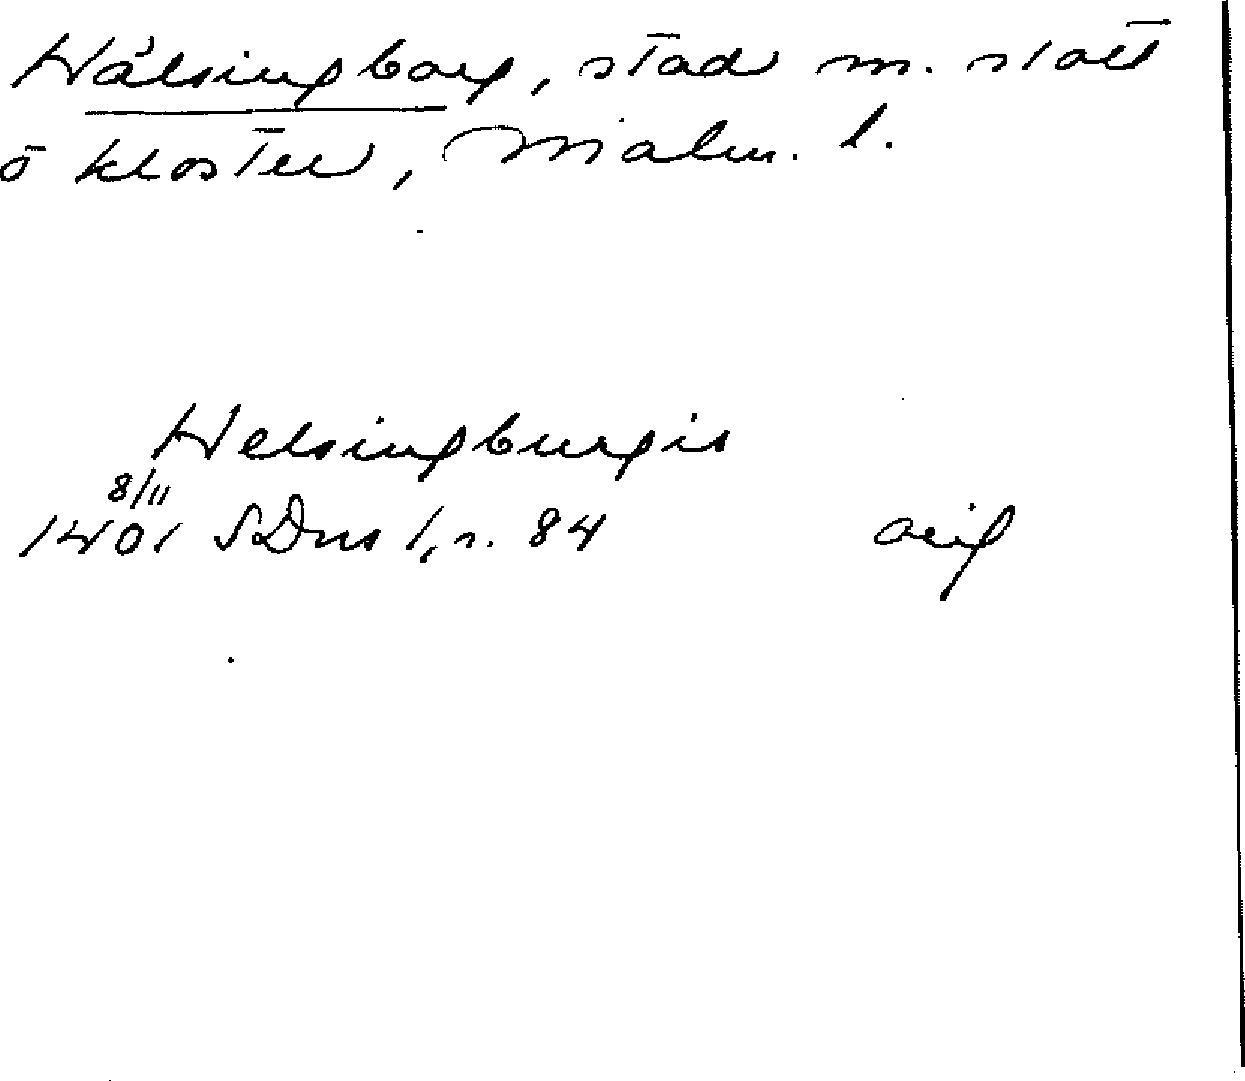 Hälsingborg, stad m. slott
o kloster, Malm. l.
Helsingburgis
8/11
1401 SDns 1, s. 84 orig